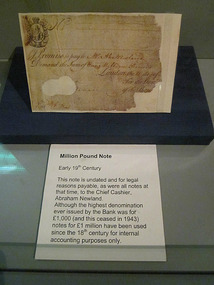 Million Pound Note
Early 19th Century
This note is undated and for legal
reasons payable, as were all notes at
that time, to the Chief Cashier,
Abraham Newland.
Although the highest denomination
ever issued by the Bank was for
£1,000 (and this ceased in 1943)
notes for £1 million have been used
since the 18th century for internal
accounting purposes only.